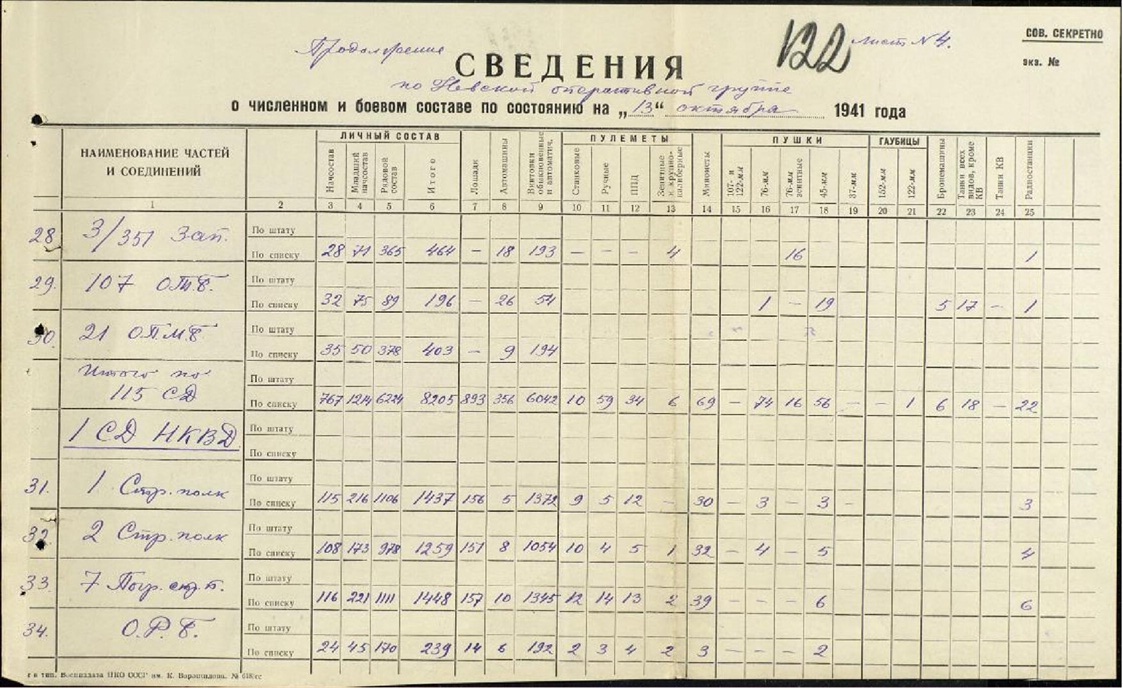 Продолжение
122
лист №4.
СОВ. СЕКРЕТНО
экз. №
СВЕДЕНИЯ
по Невской оперативной группе
о численном и боевом составе по состоянию на „13“ октября 1941 года
НАИМЕНОВАНИЕ ЧАСТЕЙ И СОЕДИНЕНИЙ
ЛИЧНЫЙ СОСТАВ
Начсостав
Младший начсостав
Рядовой состав
Итого
Лошади
Автомашины
Винтовки обыкновенные и автоматич.
ПУЛЕМЕТЫ
Станковые
Ручные
ППД
Зенитные и крупнокалиберные
Минометы
ПУШКИ
107- и 122-мм
76-мм
76-мм зенитные
45-мм
37-мм
ГАУБИЦЫ
152-мм
122-мм
Бронемашины
Танки всех видов, кроме КВ
Танки КВ
Радиостанции
1 2 3 4 5 6 7 8 9 10 11 12 13 14 15 16 17 18 19 20 21 22 23 24 25
28 3/351 Зап. По штату
По списку 28 71 365 464 — 18 193 — — — 4 16 1
29. 107 О.Т.Б. По штату
По списку 32 75 89 196 — 26 54 1 — 19 5 17 — 1
30. 21 О.П.М.Б. По штату
По списку 35 50 378 403 — 9 194
Итого по 115 СД По штату
По списку 767 1214 6224 8205 893 356 6042 10 59 34 6 69 — 74 16 56 — — 1 6 18 — 22
1 СД НКВД По штату
По списку
31. 1 Стр. полк По штату
По списку 115 216 1106 1437 156 5 1372 9 5 12 — 30 — 3 — 3 — 3
32 2 Стр. полк По штату
По списку 108 173 978 1259 151 8 1054 10 4 5 1 32 — 4 — 5 4
33. 7 По штату
По списку 116 221 1111 1448 157 10 1345 12 14 13 2 39 — — — 6 6
34. О.Р.Б. По штату
По списку 24 45 170 239 14 6 192 2 3 4 2 3 — — — 2
тип. Воениздата НКО СССР им. К. Ворошилова. №